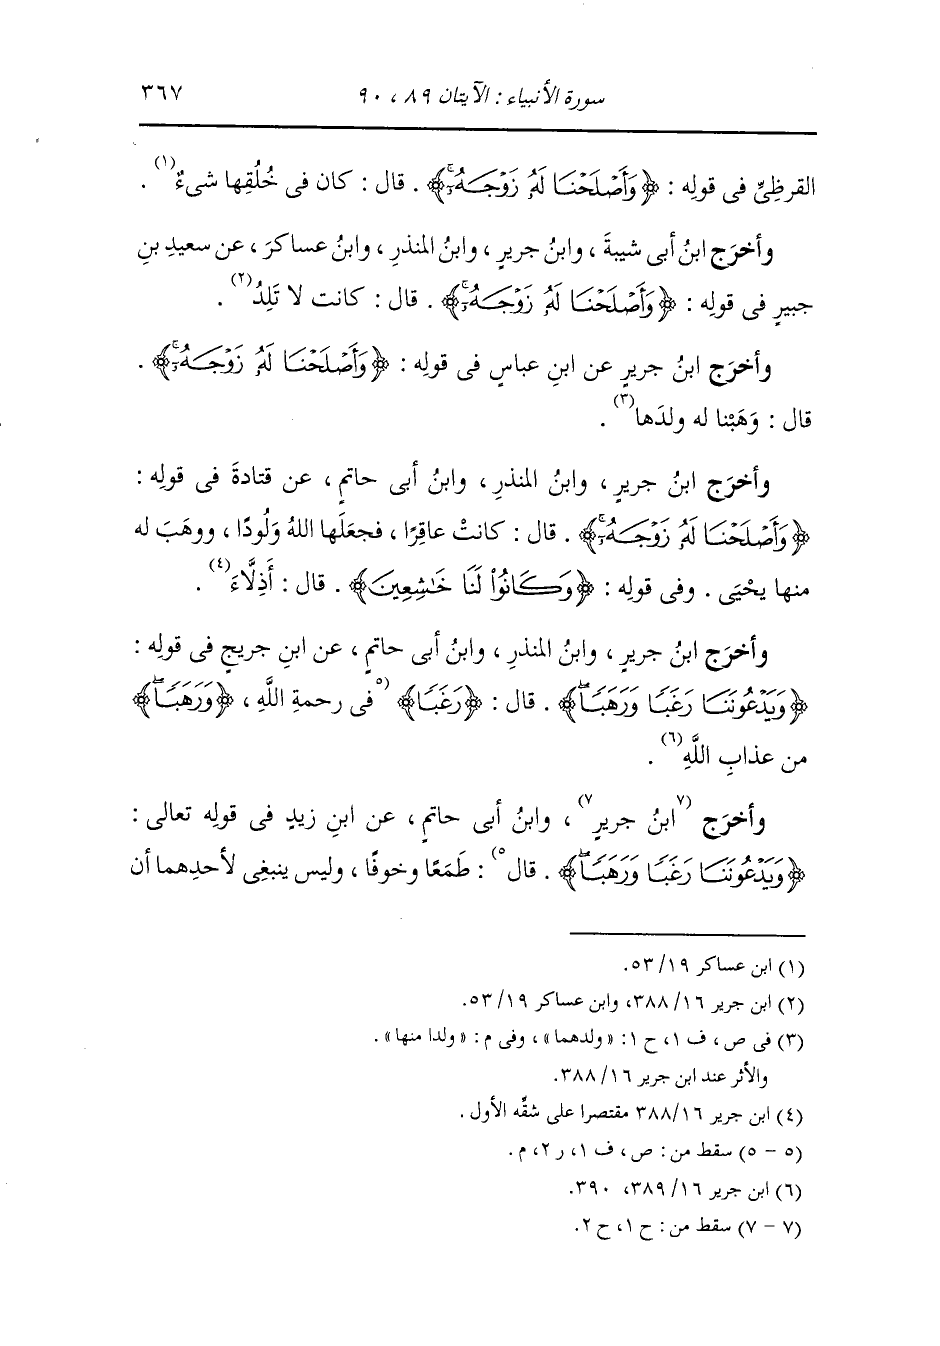 سورة الأنبياء : الآيتان ٨٩ ، ٩٠
٣٦٧
القرظىِّ فى قولِه : ﴿وَأَصْلَحْنَا لَهُۥ زَوْجَهُۥٓۚ﴾ . قال : كان فى خُلُقِها شىءٌ(١) .
وأخرَج ابنُ أبى شيبةَ ، وابنُ جريرٍ ، وابنُ المنذرِ ، وابنُ عساكرَ ، عن سعيدِ بنِ
جبيرٍ فى قولِه : ﴿وَأَصْلَحْنَا لَهُۥ زَوْجَهُۥٓۚ﴾ . قال : كانت لا تَلِدُ(٢) .
وأخرَج ابنُ جريرٍ عن ابنِ عباسٍ فى قولِه : ﴿وَأَصْلَحْنَا لَهُۥ زَوْجَهُۥٓۚ﴾ .
قال : وَهَبْنا له ولدَها(٣) .
وأخرَج ابنُ جريرٍ ، وابنُ المنذرِ ، وابنُ أبى حاتمٍ ، عن قتادةَ فى قولِه :
﴿وَأَصْلَحْنَا لَهُۥ زَوْجَهُۥٓۚ﴾ . قال : كانتْ عاقِرًا ، فجعَلَها اللهُ وَلُودًا ، ووهَبَ له
منها يحْيَى . وفى قولِه : ﴿وَكَانُوا۟ لَنَا خَـٰشِعِينَ﴾ . قال : أَذِلَّاءَ(٤) .
وأخرَج ابنُ جريرٍ ، وابنُ المنذرِ ، وابنُ أبى حاتمٍ ، عن ابنِ جريجٍ فى قولِه :
﴿وَيَدْعُونَنَا رَغَبًا وَرَهَبًاۖ﴾ . قال : ﴿رَغَبًا﴾ (٥فى رحمةِ اللَّهِ ، ﴿وَرَهَبًاۖ﴾
من عذابِ اللَّهِ(٦) .
وأخرَج (٧ابنُ جريرٍ٧) ، وابنُ أبى حاتمٍ ، عن ابنِ زيدٍ فى قولِه تعالى :
﴿وَيَدْعُونَنَا رَغَبًا وَرَهَبًاۖ﴾ . قال٥) : طَمَعًا وخوفًا ، وليس ينبغِى لأحدِهما أن
(١) ابن عساكر ١٩/ ٥٣.
(٢) ابن جرير ١٦/ ٣٨٨، وابن عساكر ١٩/ ٥٣.
(٣) فى ص ، ف ١، ح ١: «ولدهما» ، وفى م : «ولدا منها» .
والأثر عند ابن جرير ١٦/ ٣٨٨.
(٤) ابن جرير ١٦/ ٣٨٨ مقتصرا على شقِّه الأول .
(٥ - ٥) سقط من : ص ، ف ١، ر ٢، م .
(٦) ابن جرير ١٦/ ٣٨٩، ٣٩٠.
(٧ - ٧) سقط من : ح ١، ح ٢.